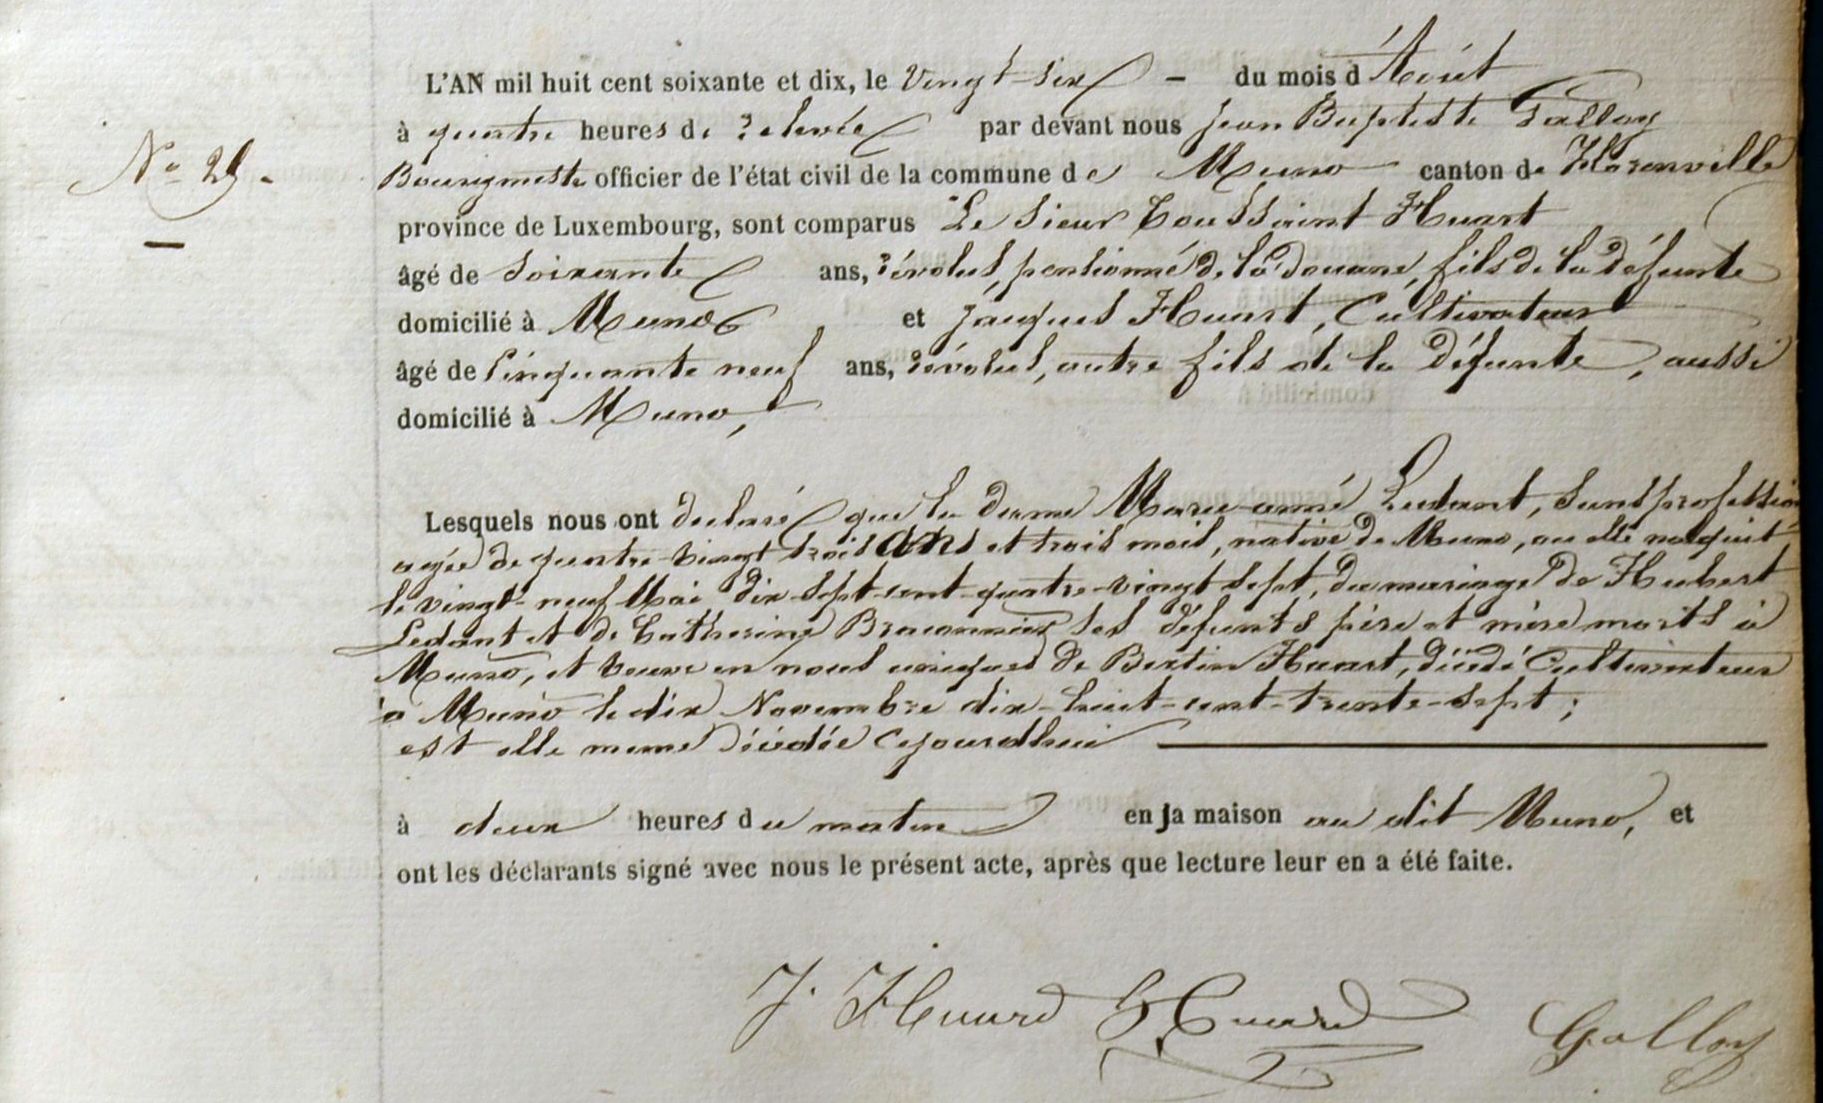 L'AN mil huit cent soixante et dix, le Vingt-six - du mois d'Août
à quatre heures de relevée par devant nous Jean Baptiste Galloy
N° 25.
Bourgmestre officier de l'état civil de la commune de Muno canton de Florenville
province de Luxembourg, sont comparus Le Sieur Toussaint Huart
âgé de Soixante ans, révolus, pensionné de la douane, fils de la défunte
domicilié à Muno, et Jacques Huart, Cultivateur
âgé de Cinquante neuf ans, révolus, autre fils de la défunte, aussi
domicilié à Muno,
Lesquels nous ont déclaré que la dame Marie-anne Ledant, sans profession
agée de quatre-vingt trois ans et trois mois, native de Muno, ou elle naquit
le vingt-neuf Mai dix-sept-cent-quatre-vingt sept, du mariage de Hubert
Ledant et de Catherine Braconnier ses défunts père et mère morts à
Muno, et veuve en de Bertin Huart, décédé Cultivateur
à Muno le dix Novembre dix-huit-cent-trente-sept;
est elle meme décédée cejourdhui
à deux heures du matin en sa maison au dit Muno, et
ont les déclarants signé avec nous le présent acte, après que lecture leur en a été faite.
J. Huard Huard Galloy